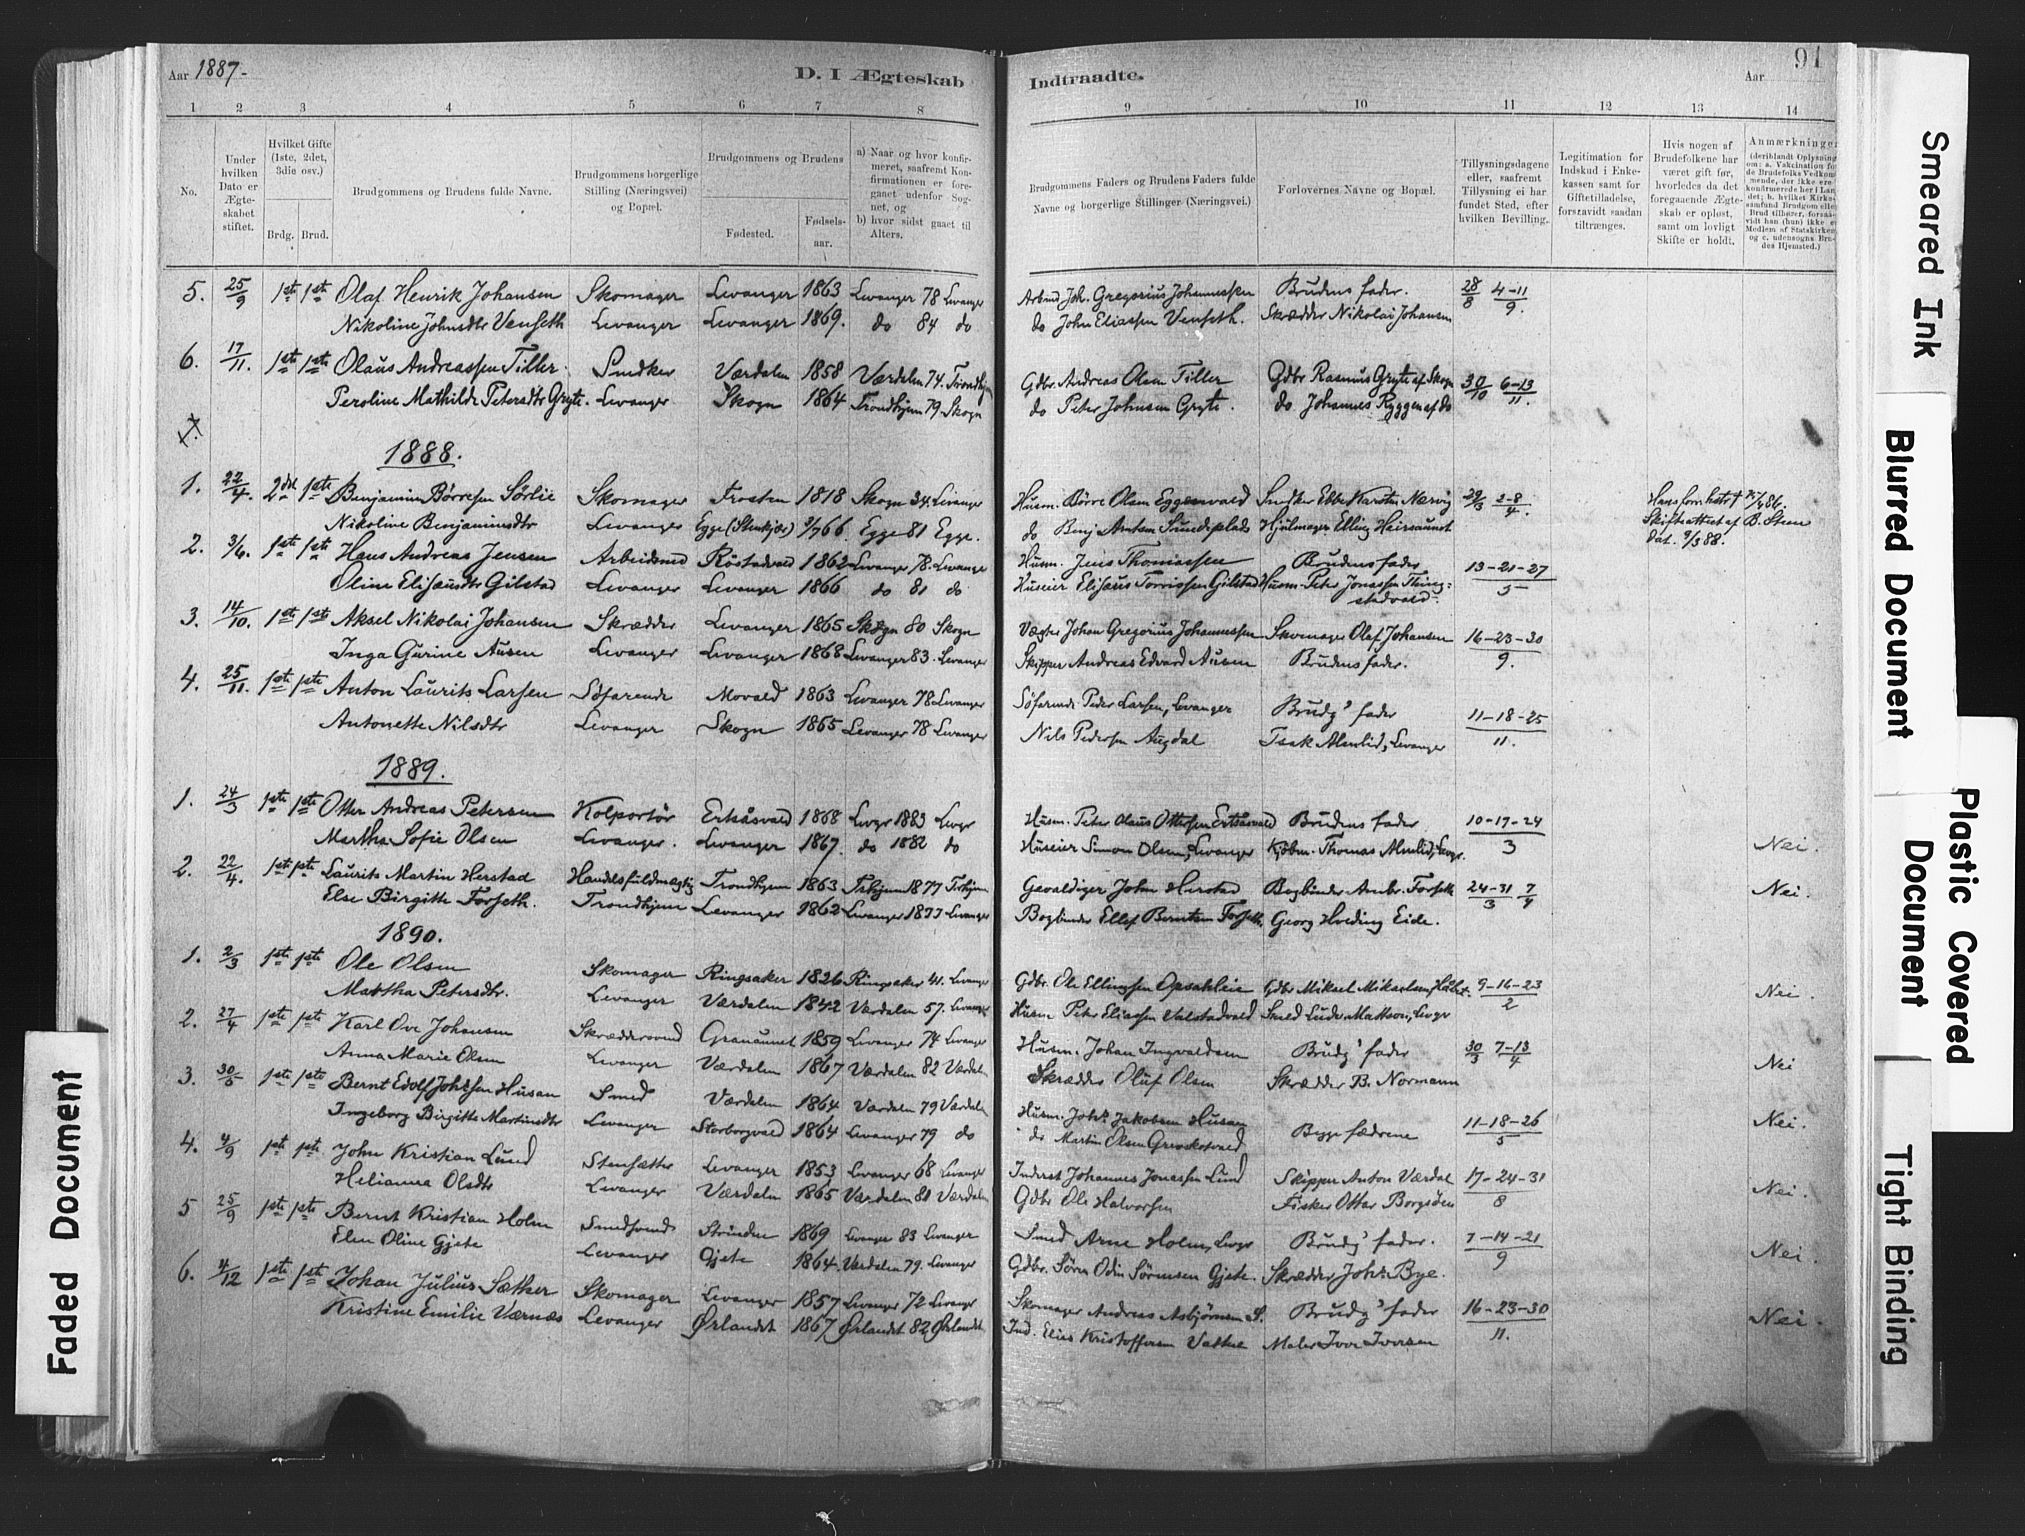 Aar 1887.
D. I Ægteskab Indtraadte.
Aar
91
1 2 3 4 5 6 7 8 9 10 11 12 13 14
No.
Under hvilken Dato er Ægteskabet stiftet.
Hvilket Gifte (1ste, 2det, 3die osv.)
Brdg. Brud.
Brudgommens og Brudens fulde Navne.
Brudgommens borgerlige Stilling (Næringsvei) og Bopæl.
Brudgommens og Brudens
Fødested.
Fødselsaar.
a) Naar og hvor konfirmeret, saafremt Konfirmationen er foregaaet udenfor Sognet, og
b) hvor sidst gaaet til Alters.
Brudgommens Faders og Brudens Faders fulde Navne og borgerlige Stillinger (Næringsvei.)
Forlovernes Navne og Bopæl.
Tillysningsdagene eller, saafremt Tillysning ei har fundet Sted, efter hvilken Bevilling.
Legitimation for Indskud i Enkekassen samt for Giftetilladelse, forsaavidt saadan tiltrænges.
Hvis nogen af Brudefolkene har været gift før, hvorledes da det foregaaende Ægteskab er opløst, samt om lovligt Skifte er holdt.
Anmærkninger
5. 25/9 1ste 1ste Olaf Henrik Johansen Skomager Levanger 1863 Levanger 78 Levanger Arbmd Joh. Gregorius Johannessen Brudens fader. 28/8 4-11/9.
Nikoline Johnsdtr Venseth Levanger Levanger 1869. do 84 do do John Eliassen Venseth. Skrædder Nikolai Johansen
6. 17/11. 1ste 1ste Olaus Andreassen Tiller. Snedker Værdalen 1858 Værdalen 74. Trondhjm Gdbr. Andreas Olsen Tiller Gdbr Rasmus Gryte af Skogn 30/10 6-13/11.
Peroline Mathilde Petersdtr Gryte. Levanger Skogn 1864 Trondhjem 79. Skogn do Peter Johnsen Gryte. do Johannes Ryggen af do
7.
1888.
1. 22/4. 2det 1ste Benjamin Børresen Sørlie Skomager Frosten 1818 Skogn 34. Levanger Husm. Børre Olsen Eggensvald Snedker Ebbe Karsten Nervig 29/3 2-8/4.
Nikoline Benjaminsdtr Levanger Egge (Stenkjær) 9/7 66. Egge 81 Egge. do Benj. Antom Sundsplads Hjulmager Elling Heirsaunet Skifteattest af B. Steen dat. 9/3 88.
2. 3/6. 1ste 1ste Hans Andreas Jensen Arbeidsmd Røstadvald 1862 Levanger 78. Levanger Husm. Jens Thomassen Brudens fader 13-21-27/5
Oline Elisæusdtr Gilstad Levanger Levanger 1866 do 81 do Huseier Elisæus Tørrissen Gilstad Husm. Peter Jonassen Thingstadvald.
3. 14/10. 1ste 1ste Aksel Nikolai Johansen Skrædder Levanger 1865 Skogn 80 Skogn Vægter Johan Gregorius Johannessen Skomager Olaf Johansen 16-23-30/9.
Inga Gurine Ausen Levanger Levanger 1868 Levanger 83. Levanger Skipper Andreas Edvard Ausen Brudens fader.
4. 25/11. 1ste 1ste Anton Laurits Larsen Søfarende Movald 1863 Levanger 78 Levanger Søfarende Peter Larsen, Levanger Brudg' fader 11-18-25/11.
Antonette Nilsdtr Levanger Skogn 1865 Levanger 78 Levanger Nils Pedersen Augdal Isak Almlid, Levanger
1889.
1. 24/3 1ste 1ste Otter Andreas Petersen Kolportør Ertsåsvald 1868 Levgr 1883 Levgr Husm. Peter Olaus Ottersen Ertsåsvald Brudens fader 10-17-24/3
Martha Sofie Olsen Levanger. Levanger 1867. do 1882 do Huseier Simon Olsen, Levanger Kjøbm. Thomas Almlid, Levgr. Nei.
2. 22/4. 1ste 1ste Laurits Martin Herstad Handelsfuldmægtig Trondhjem 1863 Trhjem 1877 Trhjem Gevaldiger John Herstad Bogbinder Ambr. Forseth 24-31/3 7/4 Nei.
Else Birgitte Forseth. Trondhjem Levanger 1862 Levanger 1877 Levanger Bogbinder Ellef Berntsen Forseth. Georg Hveding Eide.
1890.
1. 2/3 1ste 1ste Ole Olsen Skomager Ringsaker 1826 Ringsaker 41. Levanger Gdbr. Ole Ellingsen Opsahleie Gdbr Mikael Mikaelsen 9-16-23/2 Nei.
Martha Petersdtr. Levanger Værdalen 1842 Værdalen 57. Levanger Husm Peter Eliassen Valstadvald Ludv. Mattson, Levgr
2. 27/4 1ste 1ste Karl Ove Johansen Skræddersvend Granaunet 1859 Levanger 74 Levanger Husm. Johan Ingvaldsen Brudg' fader 30/3 7-13/4 Nei
Anna Marie Olsen Levanger Værdalen 1867 Værdalen 82 Værdalen Skrædder Oluf Olsen Skrædder B. Normann
3. 30/5 1ste 1ste Bernt Edolf Johssen Husan Smed Værdalen 1864 Værdalen 79 Værdalen Husm. Johs Jakobsen Husan Begge fædrene 11-18-26/5 Nei.
Ingeborg Birgitte Martinsdtr Levanger Storborgvald 1864 Levanger 79 do do Martin Olsen Grevskotvald
4. 4/9 1ste 1ste John Kristian Lund Stensætter Levanger 1853 Levanger 68 Levanger Inderst Johannes Jonassen Lund Skipper Anton Værdal 17-24-31/8 Nei.
Helianna Olsdtr Levanger Værdalen 1865 Værdalen 81 Værdalen Gdbr Ole Halvorsen Fisker Otter Borgsøen
5 25/9 1ste 1ste Bernt Kristian Holm Smedsvend Strinden 1869 Levanger 83 Levanger Smed Arne Holm, Levgr Brudg' fader. 7-14-21/9 Nei.
Elen Oline Gjete Levanger Gjete 1864. Værdalen 79. Levanger Gdbr. Søren Odin Sørensen Gjete. Skrædder Johs Bye.
6. 4/12 1ste 1ste Johan Julius Sæther Skomager Levanger 1857 Levanger 72 Levanger Skomager Andreas Asbjørnsen S. Brudg' fader 16-23-30/11. Nei.
Kristine Emilie Værnæs Levanger Ørlandet 1867 Ørlandet 82 Ørlandet Ind. Elias Kristoffersen Maler Iver Iversen
Smeared Ink
Blurred Document
Plastic Covered Document
Tight Binding
Faded Document